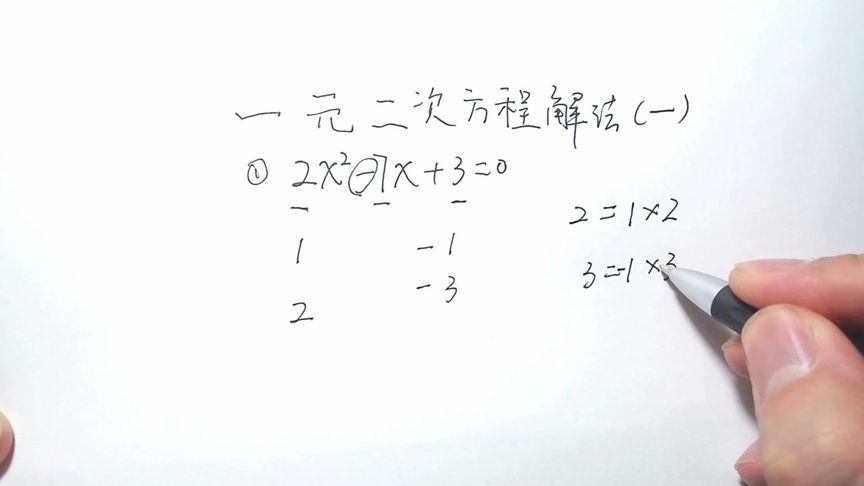 一元二次方程解法(一)
① 2x²-7x+3=0
2=1×2
1 -1
3=-1×3
-3
2